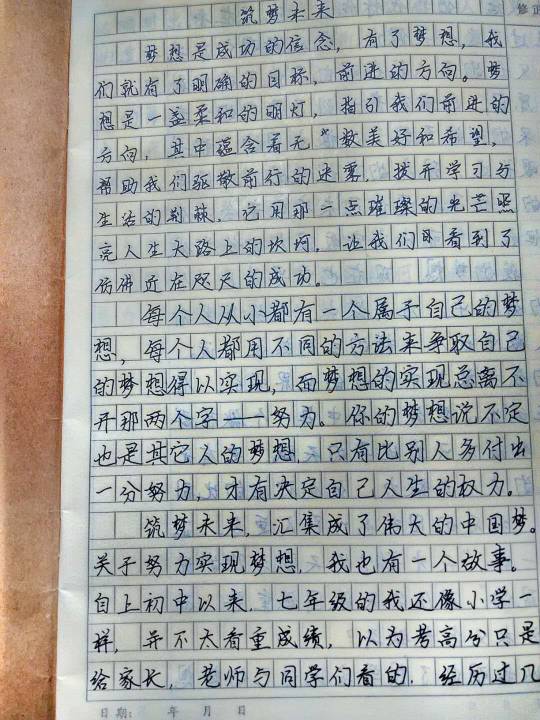 筑梦未来
梦想是成功的信念，有了梦想，我
们就有了明确的目标，前进的方向。梦
想是一盏柔和的明灯，指引我们前进的
方向，其中蕴含着无数美好和希望，
帮助我们驱散前行的迷雾，拨开学习与
生活的荆棘，它用那一点璀璨的光芒照
亮人生大路上的坎坷，让我们看到了
仿佛近在咫尺的成功。
每个人从小都有一个属于自己的梦
想，每个人都用不同的方法来争取自己
的梦想得以实现，而梦想的实现总离不
开那两个字——努力。你的梦想说不定
也是其它人的梦想，只有比别人多付出
一分努力，才有决定自己人生的权力。
筑梦未来，汇集成了伟大的中国梦。
关于努力实现梦想，我也有一个故事。
自上初中以来，七年级的我还像小学一
样，并不太看重成绩，以为考高分只是
给家长，老师与同学们看的，经历过几
日期： 年 月 日